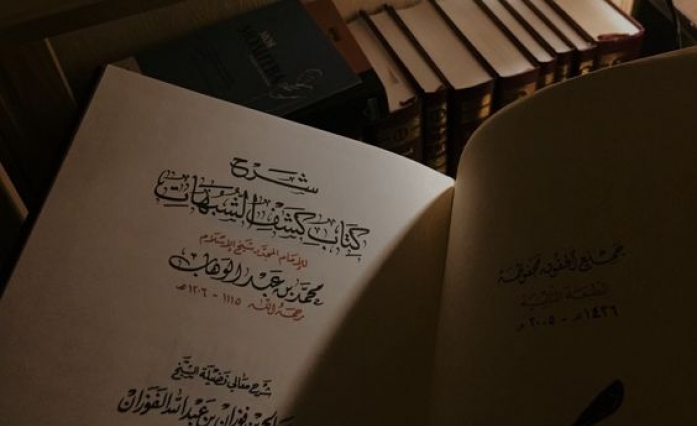 شرح
كتاب كشف الشبهات
للإمام المجدد شيخ الإسلام
محمد بن عبد الوهاب
رحمه الله ١١١٥ - ١٢٠٦ هـ
شرح معالي فضيلة الشيخ
صالح بن فوزان بن عبد الله الفوزان
جميع الحقوق محفوظة
الطبعة الثانية
١٤٢٦ هـ - ٢٠٠٥ م